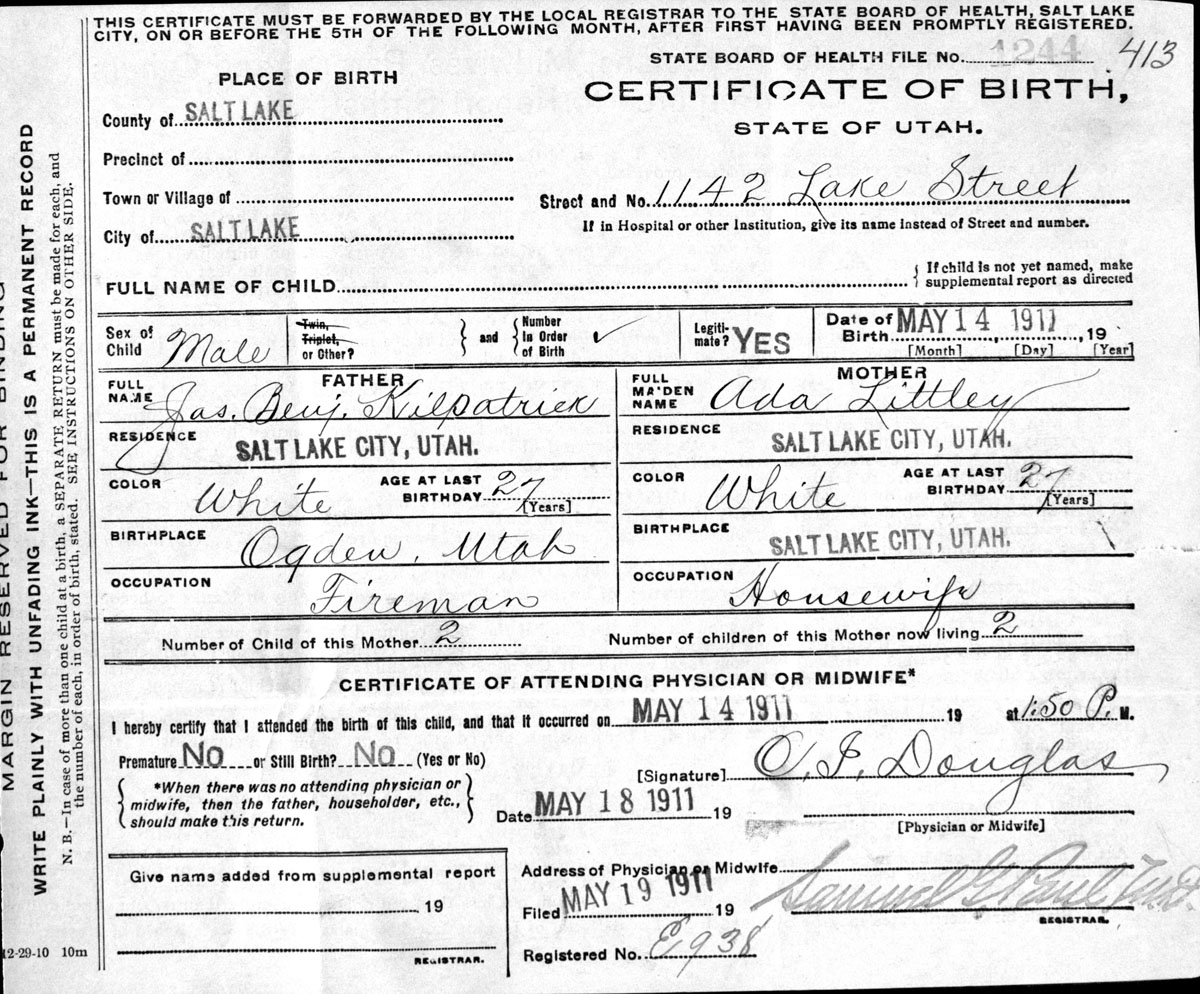 THIS CERTIFICATE MUST BE FORWARDED BY THE LOCAL REGISTRAR TO THE STATE BOARD OF HEALTH, SALT LAKE
CITY, ON OR BEFORE THE 5TH OF THE FOLLOWING MONTH, AFTER FIRST HAVING BEEN PROMPTLY REGISTERED.
STATE BOARD OF HEALTH FILE No. 1244 413
PLACE OF BIRTH
CERTIFICATE OF BIRTH,
STATE OF UTAH.
County of SALT LAKE
Precinct of
Town or Village of
Street and No. 1142 Lake Street
City of SALT LAKE
If in Hospital or other Institution, give its name instead of Street and number.
FULL NAME OF CHILD
If child is not yet named, make
supplemental report as directed
Sex of
Child Male
Twin,
Triplet,
or Other?
and
Number
In Order
of Birth
Legiti-
mate? YES
Date of
Birth MAY 14 1911, 19
[Month] [Day] [Year]
FATHER
FULL
NAME Jas. Benj. Kilpatrick
MOTHER
FULL
MAIDEN
NAME Ada Littley
RESIDENCE SALT LAKE CITY, UTAH.
RESIDENCE SALT LAKE CITY, UTAH.
COLOR White
AGE AT LAST
BIRTHDAY 27
[Years]
COLOR White
AGE AT LAST
BIRTHDAY 27
[Years]
BIRTHPLACE Ogden, Utah
BIRTHPLACE SALT LAKE CITY, UTAH.
OCCUPATION Fireman
OCCUPATION Housewife
Number of Child of this Mother 2
Number of children of this Mother now living 2
CERTIFICATE OF ATTENDING PHYSICIAN OR MIDWIFE*
I hereby certify that I attended the birth of this child, and that it occurred on MAY 14 1911 19 at 1:50 P. M.
Premature No or Still Birth? No (Yes or No)
[Signature] O. J. Douglas
*When there was no attending physician or
midwife, then the father, householder, etc.,
should make this return.
Date MAY 18 1911 19
[Physician or Midwife]
Give name added from supplemental report
19
REGISTRAR.
Address of Physician or Midwife
Filed MAY 19 1911 19
Samuel G Paul M.D.
REGISTRAR.
Registered No. E938
12-29-10 10m
MARGIN RESERVED FOR BINDING
WRITE PLAINLY WITH UNFADING INK—THIS IS A PERMANENT RECORD
N. B.—In case of more than one child at a birth, a SEPARATE RETURN must be made for each, and
the number of each, in order of birth, stated. SEE INSTRUCTIONS ON OTHER SIDE.